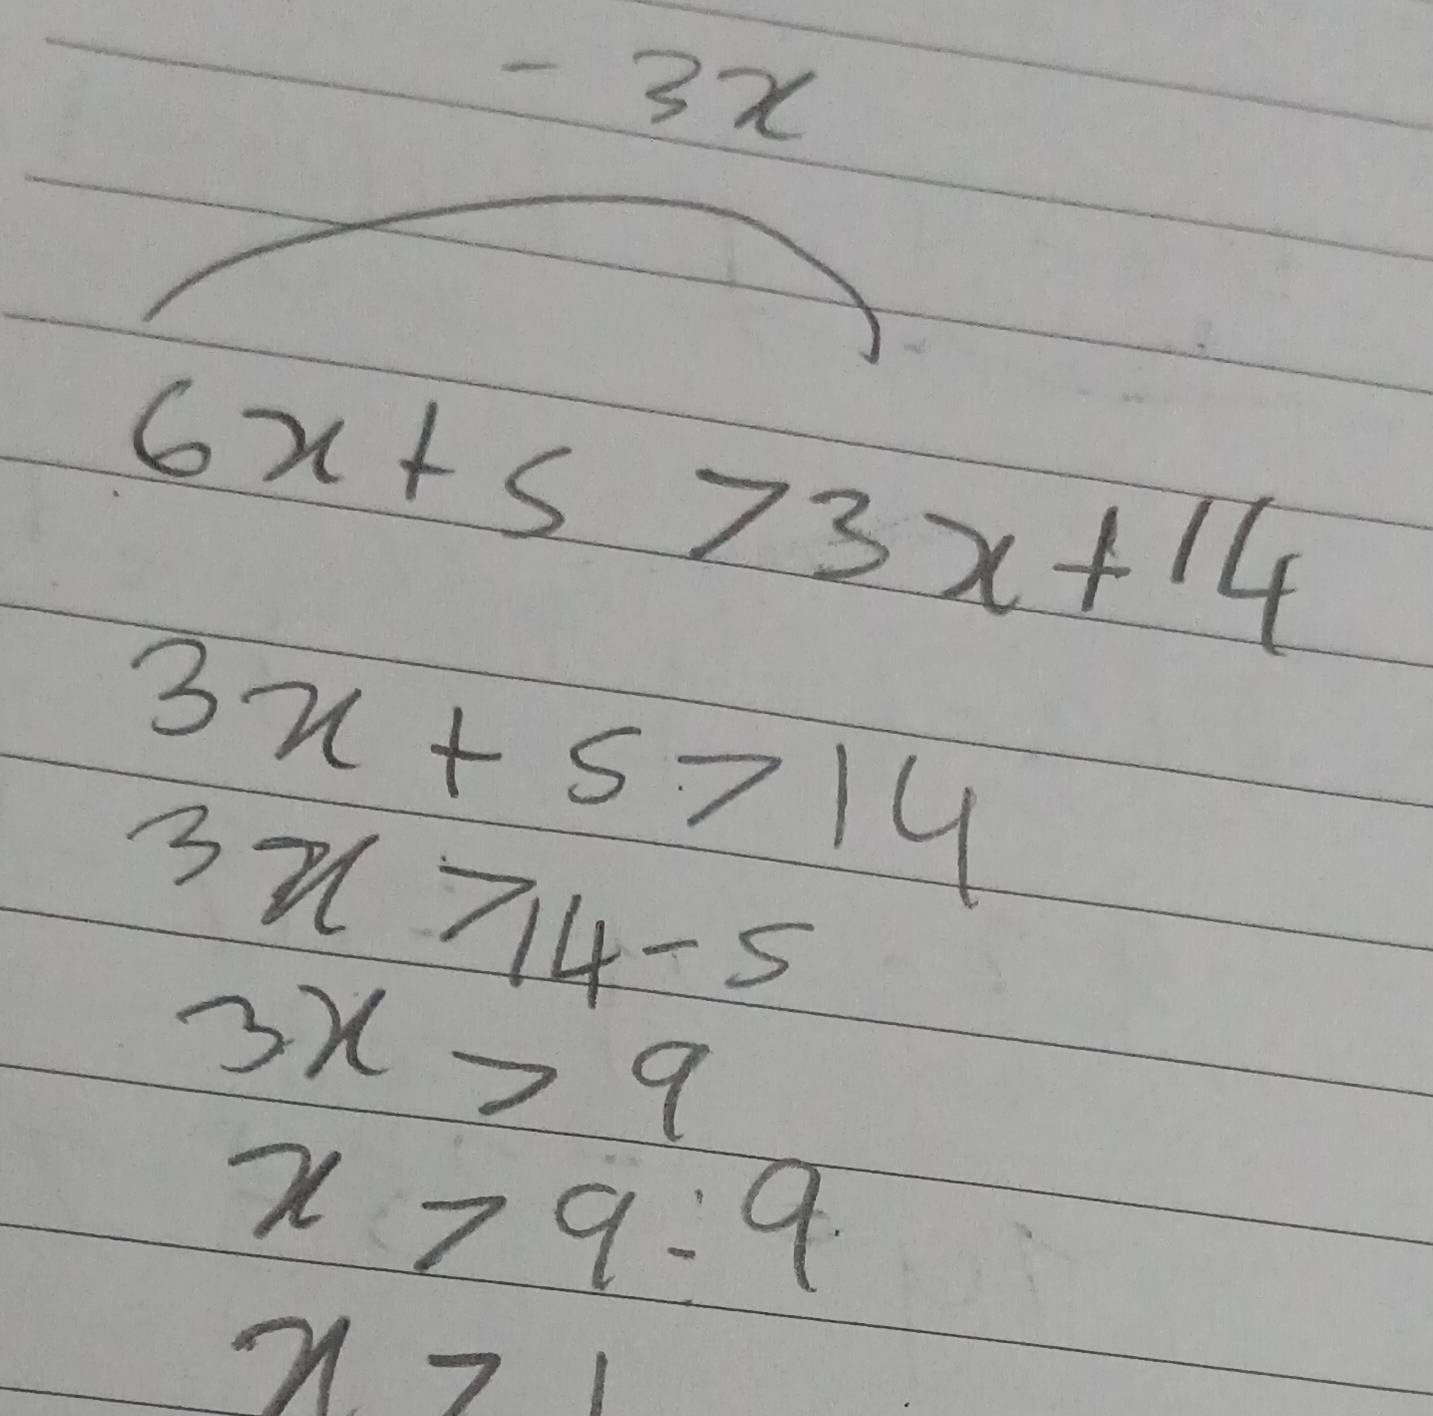 - 3x
6x + 5 > 3x + 14
3x + 5 > 14
3x > 14 - 5
3x > 9
x > 9 ÷ 9
x > 1